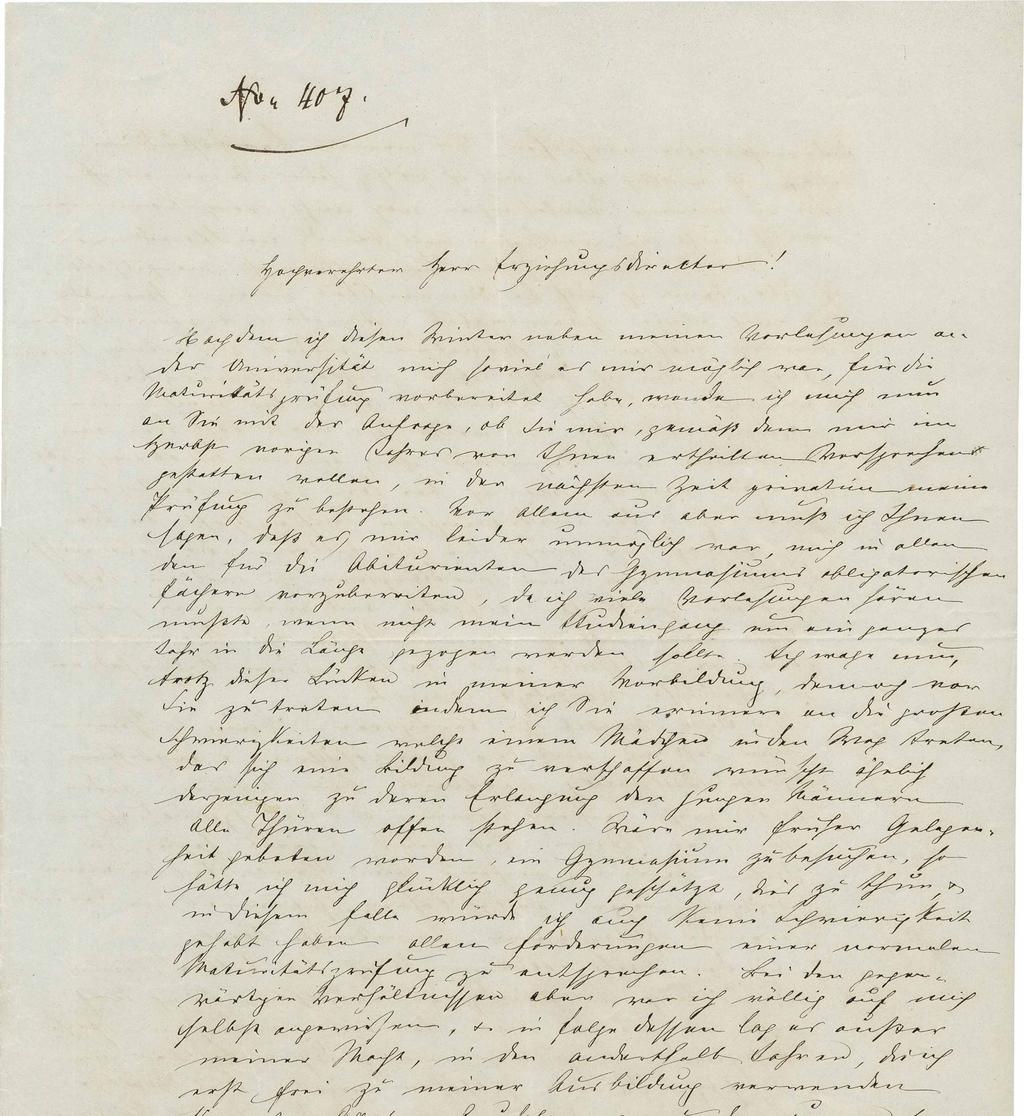 No 407.
Hochverehrter Herr Erziehungsdirector!
Nachdem ich diesen Winter neben meinen Vorlesungen an
der Universität mich soviel es mir möglich war, für die
Maturitätsprüfung vorbereitet habe, wende ich mich nun
an Sie mit der Anfrage, ob Sie mir, gemäß dem mir im
Herbst vorigen Jahres von Ihnen ertheilten Versprechen
gestatten wollen, in der nächsten Zeit privatim meine
Prüfung zu bestehen. Vor allem aus aber muß ich Ihnen
sagen, daß es mir leider unmöglich war, mich in allen
den für die Abiturienten des Gymnasiums obligatorischen
Fächern vorzubereiten, da ich viele Vorlesungen hören
mußte, wenn nicht mein Studiengang um ein ganzes
Jahr in die Länge gezogen werden sollte. Ich wage nun,
trotz dieser Lücken in meiner Vorbildung, dennoch vor
Sie zu treten indem ich Sie erinnere an die großen
Schwierigkeiten welche einem Mädchen in den Weg treten,
das sich eine Bildung zu verschaffen wünscht ähnlich
derjenigen zu deren Erlangung den jungen Männern
alle Thüren offen stehen. Wäre mir früher Gelegen-
heit geboten worden, ein Gymnasium zu besuchen, so
hätte ich mich glücklich genug geschätzt, dies zu thun, &
in diesem Falle würde ich auch keine Schwierigkeit
gehabt haben allen Forderungen einer normalen
Maturitätsprüfung zu entsprechen. Bei den gegen-
wärtigen Verhältnissen aber war ich völlig auf mich
selbst angewiesen, & in Folge dessen lag es außer
meiner Macht, in den anderthalb Jahren, die ich
erst frei zu meiner Ausbildung verwenden